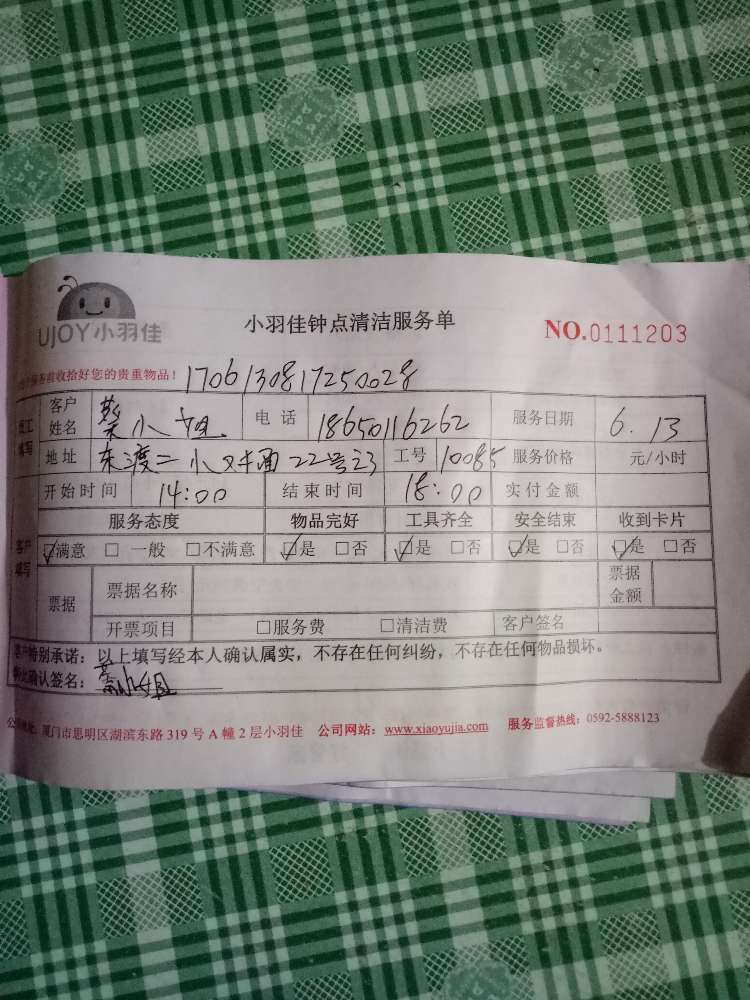 UJOY小羽佳
小羽佳钟点清洁服务单
NO.0111203
收拾好您的贵重物品! 1706130817250028
客户姓名 蔡小姐 电话 18650116262 服务日期 6.13
地址 东渡二小对面22号23 工号 10085 服务价格 元/小时
开始时间 14:00 结束时间 18:00 实付金额
服务态度 物品完好 工具齐全 安全结束 收到卡片
客户填写 ☑满意 □一般 □不满意 ☑是 □否 ☑是 □否 ☑是 □否 ☑是 □否
票据 票据名称 票据金额
开票项目 □服务费 □清洁费 客户签名
客户特别承诺:以上填写经本人确认属实,不存在任何纠纷,不存在任何物品损坏。
确认签名: 蔡小姐
公司地址:厦门市思明区湖滨东路319号A幢2层小羽佳 公司网站:www.xiaoyujia.com 服务监督热线:0592-5888123